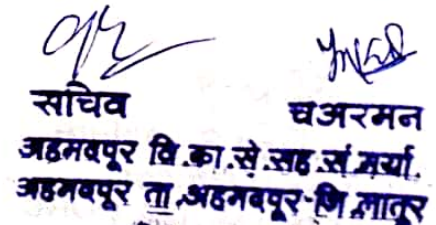 सचिव चेअरमन
अहमदपूर वि.का.से.सह.सं.मर्या.
अहमदपूर ता.अहमदपूर-जि.लातूर